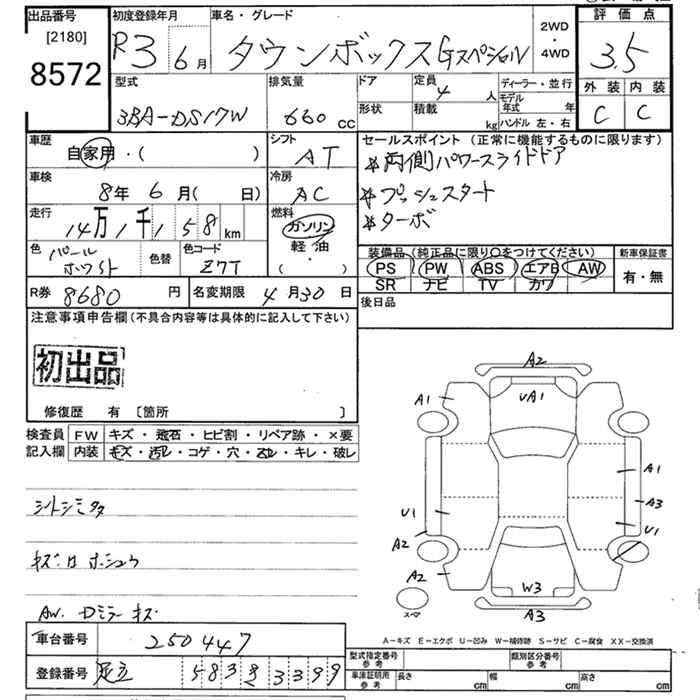 出品番号
[2180]
8572
初度登録年月
R3 6月
車名・グレード
タウンボックス Gスペシャル
2WD
・
4WD
評価点
3.5
外装 内装
C C
型式
3BA-DS17W
排気量
660 cc
ドア
形状
定員
4 人
積載
kg
ディーラー・並行
モデル年式 年
ハンドル 左・右
車歴
自家用・( )
車検
8年 6月( 日)
走行
14万1千158km
色
パールホワイト
色替
色コード
Z7T
シフト
AT
冷房
AC
燃料
ガソリン
軽油
・
( )
セールスポイント (正常に機能するものに限ります)
☆両側パワースライドドア
☆プッシュスタート
☆ターボ
装備品(純正品に限り○をつけてください)
PS PW ABS エアB AW
SR ナビ TV カワ
新車保証書
有・無
R券 8680 円
名変期限 4月30日
後日品
注意事項申告欄(不具合内容等は具体的に記入して下さい)
初出品
修復歴 有 〔箇所 〕
検査員
記入欄
FW キズ・飛石・ヒビ割・リペア跡・×要
内装 キズ・汚レ・コゲ・穴・スレ・キレ・破レ
シートシミ多々
キズ・凹 ホシュウ
AW. Dミラーキズ
A2
A1
UA1
A1
A3
U1
U1
A2
A2
W3
A3
スペア
A−キズ E−エクボ U−凹み W−補修跡 S−サビ C−腐食 XX−交換済
車台番号 250447
登録番号 足立 583 き 3399
型式指定番号
参考
類別区分番号
参考
車庫証明用
参考
長さ cm
幅 cm
高さ cm